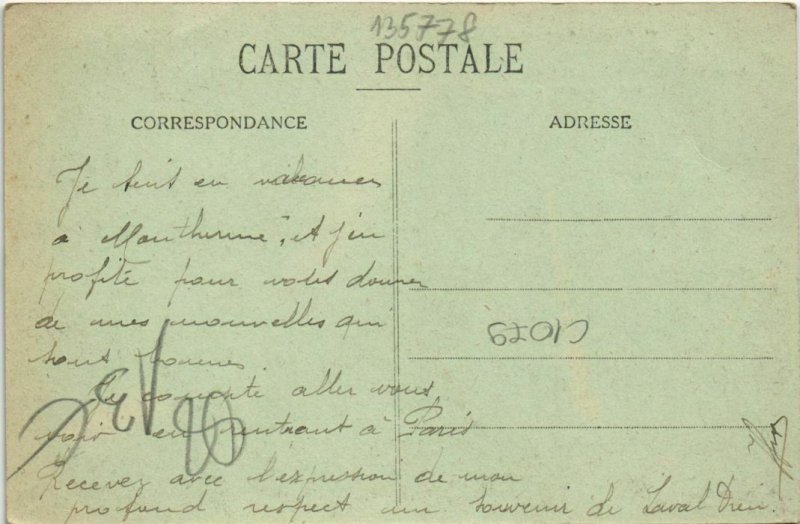 135778
CARTE POSTALE
CORRESPONDANCE
ADRESSE
Je suis en vacances
à Monthermé, et j'en
profite pour vous donner
de mes nouvelles qui
sont bonnes
Je compte aller vous
voir en rentrant à Paris
Recevez avec l'expression de mon
profond respect un souvenir de Laval Dieu.
C1079